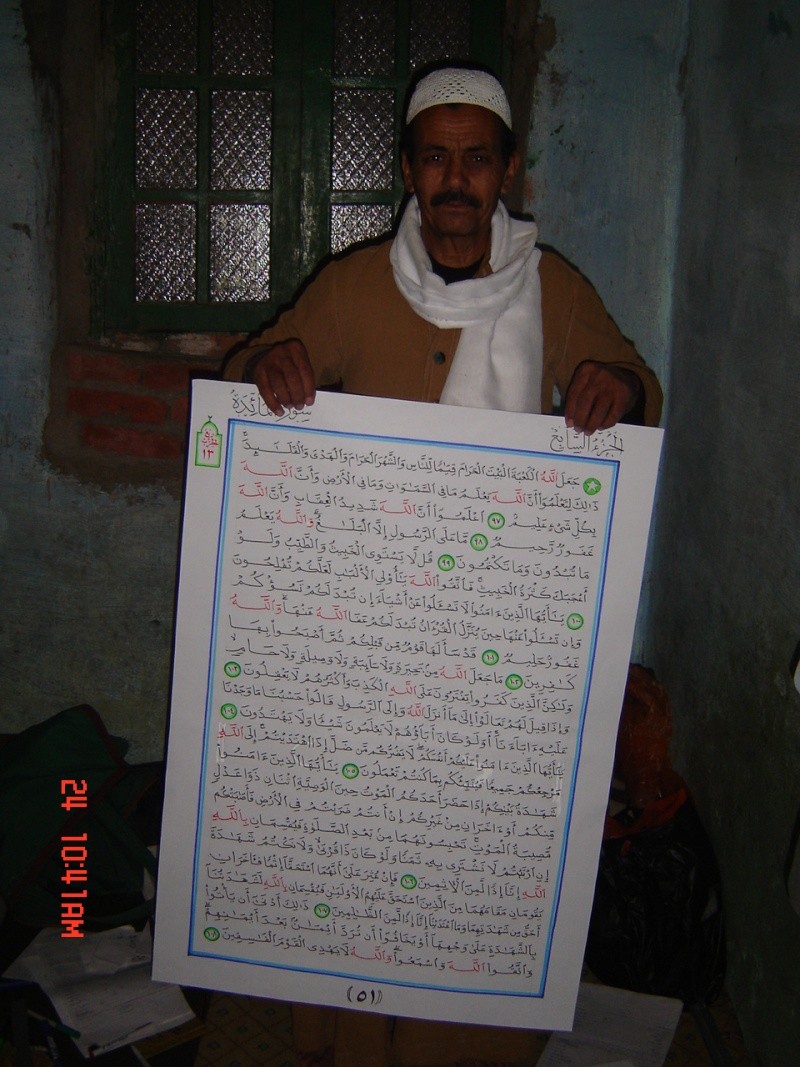 سُورَةُ الْمَائِدَةِ
الجُزْءُ السَّابِعُ
١٣
۞ جَعَلَ اللَّهُ الْكَعْبَةَ الْبَيْتَ الْحَرَامَ قِيَٰمًا لِّلنَّاسِ وَالشَّهْرَ الْحَرَامَ وَالْهَدْىَ وَالْقَلَٰٓئِدَ
ذَٰلِكَ لِتَعْلَمُوٓا۟ أَنَّ اللَّهَ يَعْلَمُ مَا فِى السَّمَٰوَٰتِ وَمَا فِى الْأَرْضِ وَأَنَّ اللَّهَ
بِكُلِّ شَىْءٍ عَلِيمٌ ٩٧ اعْلَمُوٓا۟ أَنَّ اللَّهَ شَدِيدُ الْعِقَابِ وَأَنَّ اللَّهَ
غَفُورٌ رَّحِيمٌ ٩٨ مَّا عَلَى الرَّسُولِ إِلَّا الْبَلَٰغُ وَاللَّهُ يَعْلَمُ
مَا تُبْدُونَ وَمَا تَكْتُمُونَ ٩٩ قُل لَّا يَسْتَوِى الْخَبِيثُ وَالطَّيِّبُ وَلَوْ
أَعْجَبَكَ كَثْرَةُ الْخَبِيثِ فَاتَّقُوا۟ اللَّهَ يَٰٓأُو۟لِى الْأَلْبَٰبِ لَعَلَّكُمْ تُفْلِحُونَ
١٠٠ يَٰٓأَيُّهَا الَّذِينَ ءَامَنُوا۟ لَا تَسْـَٔلُوا۟ عَنْ أَشْيَآءَ إِن تُبْدَ لَكُمْ تَسُؤْكُمْ
وَإِن تَسْـَٔلُوا۟ عَنْهَا حِينَ يُنَزَّلُ الْقُرْءَانُ تُبْدَ لَكُمْ عَفَا اللَّهُ عَنْهَا وَاللَّهُ
غَفُورٌ حَلِيمٌ ١٠١ قَدْ سَأَلَهَا قَوْمٌ مِّن قَبْلِكُمْ ثُمَّ أَصْبَحُوا۟ بِهَا
كَٰفِرِينَ ١٠٢ مَا جَعَلَ اللَّهُ مِنۢ بَحِيرَةٍ وَلَا سَآئِبَةٍ وَلَا وَصِيلَةٍ وَلَا حَامٍ
وَلَٰكِنَّ الَّذِينَ كَفَرُوا۟ يَفْتَرُونَ عَلَى اللَّهِ الْكَذِبَ وَأَكْثَرُهُمْ لَا يَعْقِلُونَ ١٠٣
وَإِذَا قِيلَ لَهُمْ تَعَالَوْا۟ إِلَىٰ مَآ أَنزَلَ اللَّهُ وَإِلَى الرَّسُولِ قَالُوا۟ حَسْبُنَا مَا وَجَدْنَا
عَلَيْهِ ءَابَآءَنَآ أَوَلَوْ كَانَ ءَابَآؤُهُمْ لَا يَعْلَمُونَ شَيْـًٔا وَلَا يَهْتَدُونَ ١٠٤
يَٰٓأَيُّهَا الَّذِينَ ءَامَنُوا۟ عَلَيْكُمْ أَنفُسَكُمْ لَا يَضُرُّكُم مَّن ضَلَّ إِذَا اهْتَدَيْتُمْ إِلَى اللَّهِ
مَرْجِعُكُمْ جَمِيعًا فَيُنَبِّئُكُم بِمَا كُنتُمْ تَعْمَلُونَ ١٠٥ يَٰٓأَيُّهَا الَّذِينَ ءَامَنُوا۟
شَهَٰدَةُ بَيْنِكُمْ إِذَا حَضَرَ أَحَدَكُمُ الْمَوْتُ حِينَ الْوَصِيَّةِ اثْنَانِ ذَوَا عَدْلٍ
مِّنكُمْ أَوْ ءَاخَرَانِ مِنْ غَيْرِكُمْ إِنْ أَنتُمْ ضَرَبْتُمْ فِى الْأَرْضِ فَأَصَٰبَتْكُم
مُّصِيبَةُ الْمَوْتِ تَحْبِسُونَهُمَا مِنۢ بَعْدِ الصَّلَوٰةِ فَيُقْسِمَانِ بِاللَّهِ
إِنِ ارْتَبْتُمْ لَا نَشْتَرِى بِهِۦ ثَمَنًا وَلَوْ كَانَ ذَا قُرْبَىٰ وَلَا نَكْتُمُ شَهَٰدَةَ
اللَّهِ إِنَّآ إِذًا لَّمِنَ الْـَٔاثِمِينَ ١٠٦ فَإِنْ عُثِرَ عَلَىٰٓ أَنَّهُمَا اسْتَحَقَّآ إِثْمًا فَـَٔاخَرَانِ
يَقُومَانِ مَقَامَهُمَا مِنَ الَّذِينَ اسْتَحَقَّ عَلَيْهِمُ الْأَوْلَيَٰنِ فَيُقْسِمَانِ بِاللَّهِ لَشَهَٰدَتُنَآ
أَحَقُّ مِن شَهَٰدَتِهِمَا وَمَا اعْتَدَيْنَآ إِنَّآ إِذًا لَّمِنَ الظَّٰلِمِينَ ١٠٧ ذَٰلِكَ أَدْنَىٰٓ أَن يَأْتُوا۟
بِالشَّهَٰدَةِ عَلَىٰ وَجْهِهَآ أَوْ يَخَافُوٓا۟ أَن تُرَدَّ أَيْمَٰنٌۢ بَعْدَ أَيْمَٰنِهِمْ
وَاتَّقُوا۟ اللَّهَ وَاسْمَعُوا۟ وَاللَّهُ لَا يَهْدِى الْقَوْمَ الْفَٰسِقِينَ ١٠٨
(٥١)
24 10:41AM